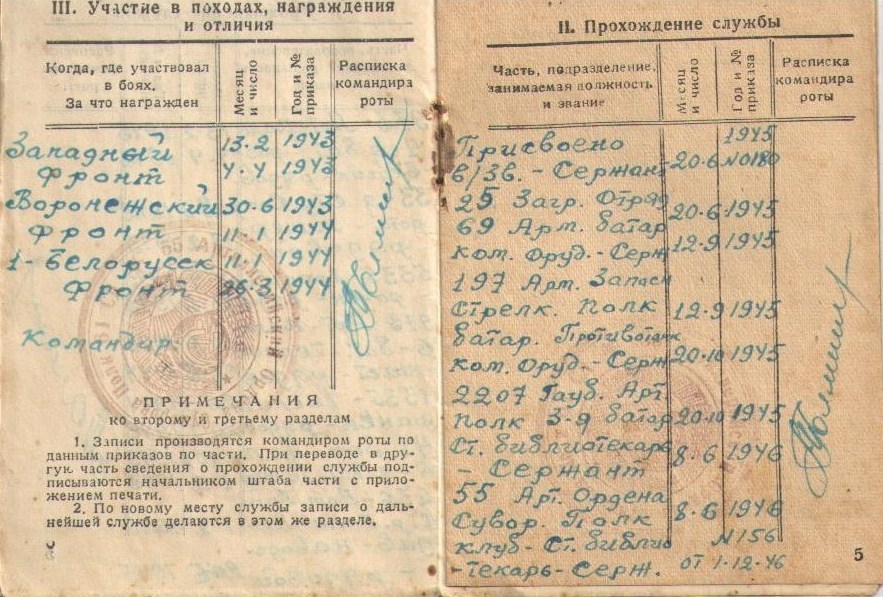 III. Участие в походах, награждения
и отличия
Когда, где участвовал
в боях.
За что награжден
Месяц
и число
Год и №
приказа
Расписка
командира
роты
Западный 13.2 1943
фронт 4.4 1943
Воронежский 30.6 1943
фронт 11.1 1944
1-Белорусск 11.1 1944
фронт 26.3 1944
Командир
ПРИМЕЧАНИЯ
ко второму и третьему разделам
1. Записи производятся командиром роты по
данным приказов по части. При переводе в дру-
гую часть сведения о прохождении службы под-
писываются начальником штаба части с прило-
жением печати.
2. По новому месту службы записи о даль-
нейшей службе делаются в этом же разделе.
II. Прохождение службы
Часть, подразделение,
занимаемая должность
и звание
Месяц
и число
Год и №
приказа
Расписка
командира
роты
Присвоено 1945
в/зв. - Сержант 20.6 N0180
25 Загр. Отряд
69 Арт. батар 20.6 1945
ком. Оруд. - Серж 12.9 1945
197 Арт. Запасн
Стрелк. Полк 12.9 1945
батар. Противотанк
ком. Оруд. - Серж 20.10 1945
2207 Гауб. Арт.
Полк 3-я батар 20.10 1945
Ст. библиотекарь 8.6 1946
- Сержант
55 Арт. Ордена
Сувор. Полк 8.6 1946
клуб - Ст. библио N156
-текарь - Серж. от 1.12.46
5